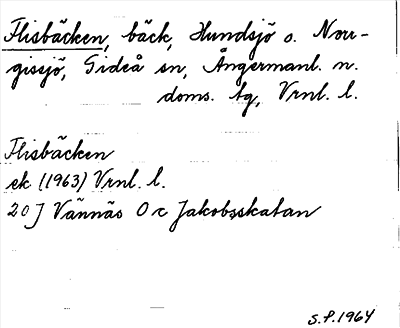 Flisbäcken, bäck, Hundsjö o. Norr-
gissjö, Gideå sn, Ångermanl. n.
doms. tg, Vrnl. l.
Flisbäcken
ek (1963) Vrnl. l.
20 J Vännäs O c Jakobsskatan
S.P. 1964